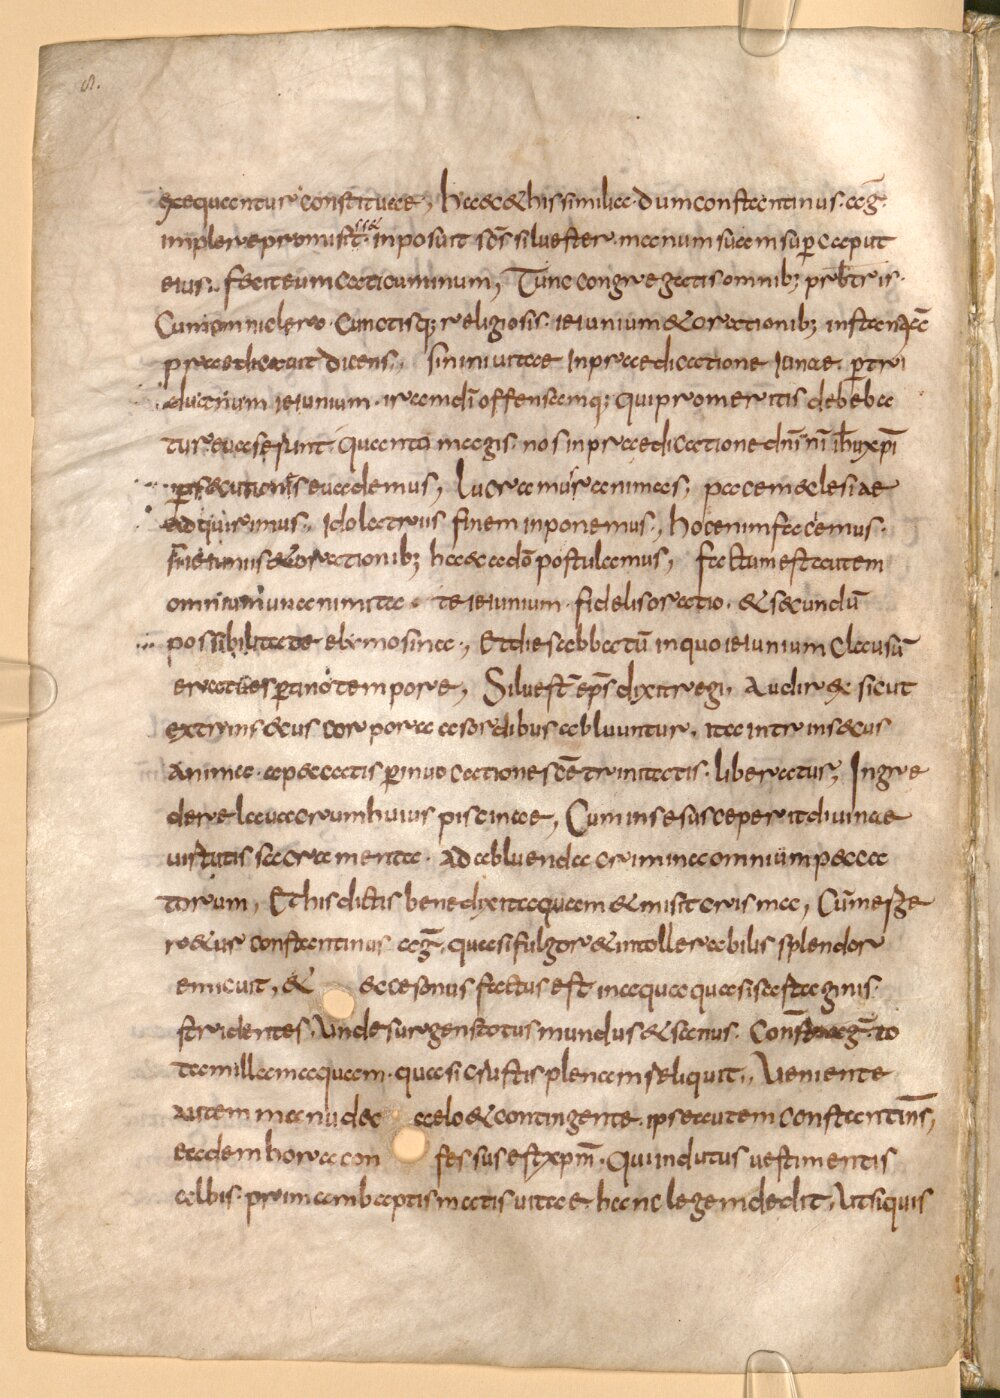 s.
exequantur constituae, haec & his similia dum constantinus aug̅
implere promisit s̅s̅e inposuit sc̅s siluester manum suam sup̱ caput
eius. fecit eum caticuminum, Tunc congregatis omnib; prbt̅ris
Cum omni clero Cunctisq; religiosis ieiunium & orationib; instan
dicens, si niniuitae In praedicatione Ionae p̱ tri
duanum ieiunium iram di̅ offensamq; qui promeritis debeba
tur euaserunt quanto magis nos in praedicatione dn̅i n̅i ihu xp̅i
p̱secutiones euademus, lucramur animas, pacem eclesiae
adquirimus, Idolatriis finem inponemus, hoc enim faciemus
si ieiuniis & orationib; haec a do̅ postulemus, factum est autem
omnium unanimita te ieiunium fidelis oratio & secundu̅
possibilitate elymosina, Et die sabbatu̅ in quo ieiunium Clausu̅
p̱tino tempore, Siluest̅ ep̅s dixit regi, Audi re& sicut
extrins&us corpora a sordibus abluuntur, ita intrins&us
anima a peccatis p̱ inuocationes sc̅e trinitatis liberatus, Ingre
dere lauacrum huius piscinae, Cum in se susceperit diuinae
uirtutis sacramenta ad abluenda crimina omnium pecca
torum, Et his dictis benedixit aquam & misit crisma, Cu̅ ingre
r&ur constantinus aug̅, quasi fulgor & intollerabilis splendor
emicuit, & ac sonus factus est in aqua quasi sartaginis
stridentes, Unde surgens totus mundus & sanus Const̅ aug̅ to
tam illam aquam quasi crustis plenam reliquit, Ueniente
autem manu de caelo & contingente ipse autem constantin̅s,
eadem hora con fessus est xp̅m Qui indutus uestimentis
albis prima baptismatis uitae hanc legem dedit, Ut siquis